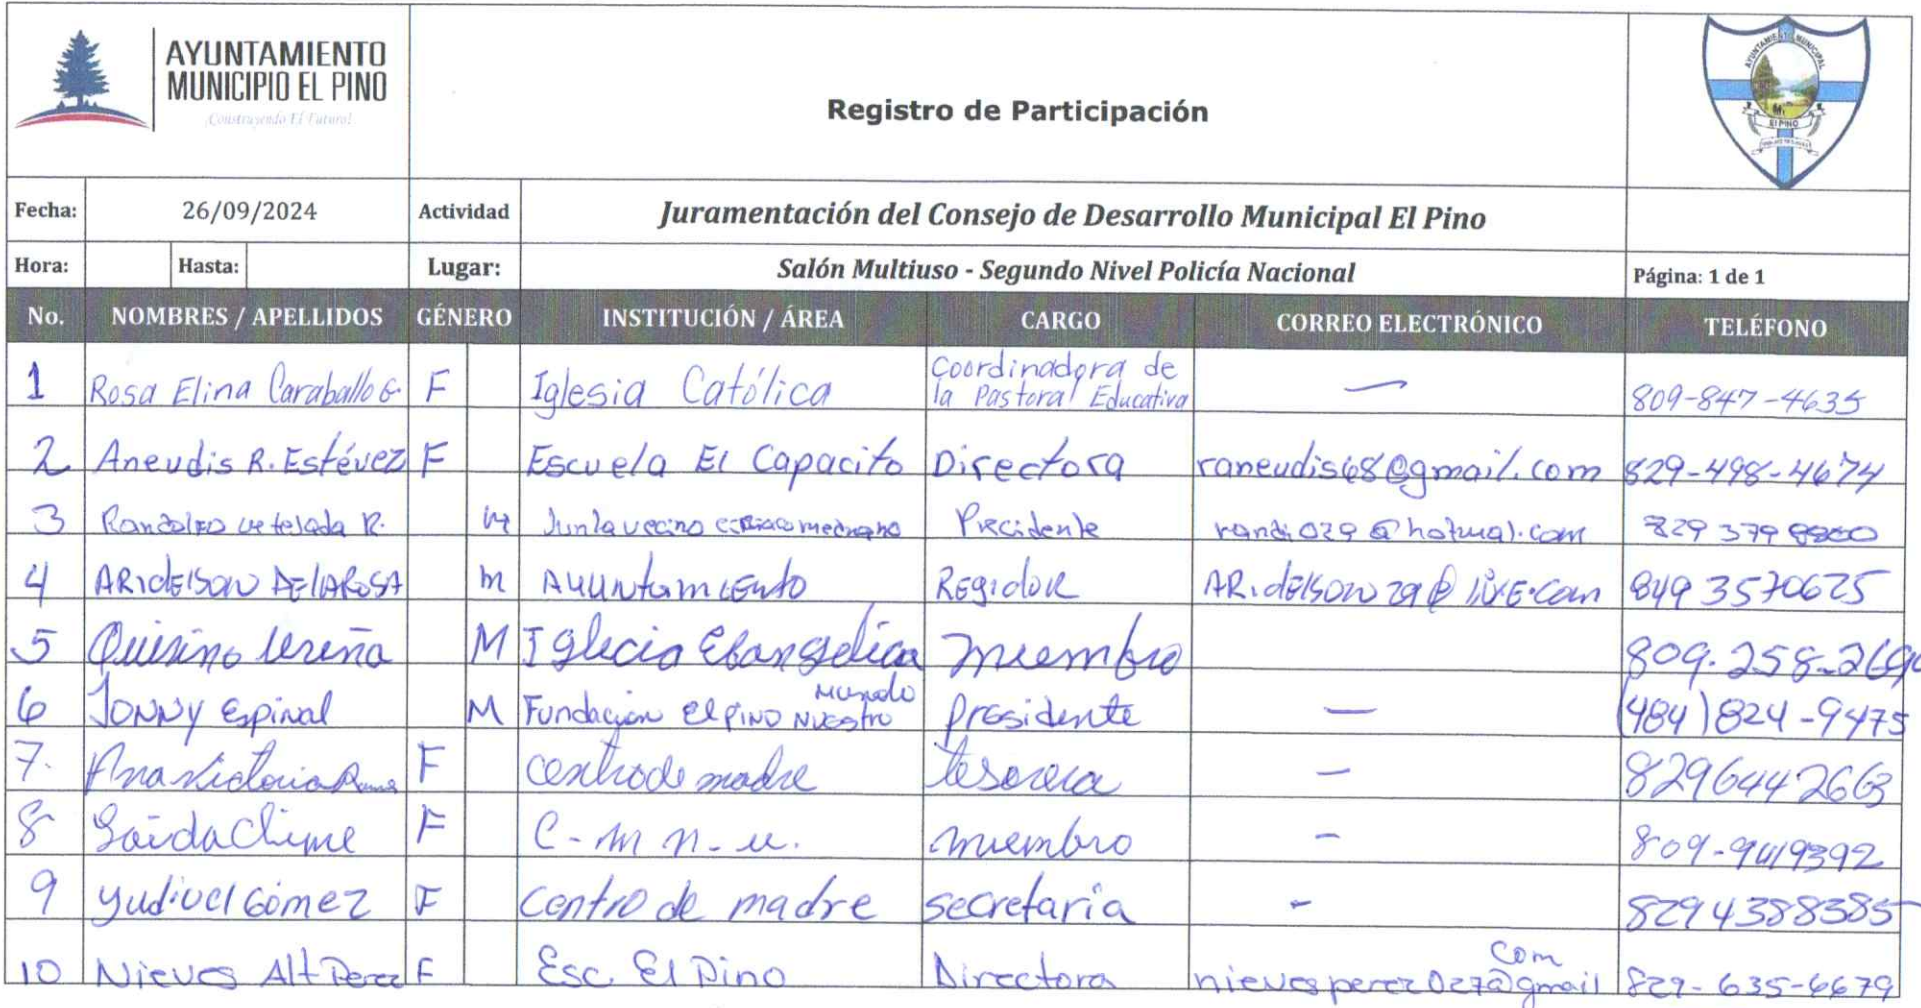 AYUNTAMIENTO
MUNICIPIO EL PINO
¡Construyendo El Futuro!
Registro de Participación
AYUNTAMIENTO MUNICIPAL
El PINO
Fecha: 26/09/2024 Actividad Juramentación del Consejo de Desarrollo Municipal El Pino
Hora: Hasta: Lugar: Salón Multiuso - Segundo Nivel Policía Nacional Página: 1 de 1
No. NOMBRES / APELLIDOS GÉNERO INSTITUCIÓN / ÁREA CARGO CORREO ELECTRÓNICO TELÉFONO
1 Rosa Elina Caraballo G. F Iglesia Católica Coordinadora de la Pastoral Educativa — 809-847-4635
2 Aneudis R. Estévez F Escuela El Capacito Directora raneudis68@gmail.com 829-498-4674
3 R. M Junta vecino Precidente 829 379
4 ARIdElSON DE lA ROSA m Ayuntamiento REgidoR 849 3570625
5 Ureña M Iglecia Ebangelica miembro 809-258-
6 JONNY Espinal M Fundación El PINO Nuestro Mundo presidente — (484) 824-9475
7. Ana Victoria F centro de madre tesorera — 8296442663
8 F C-m n-u. miembro -
9 Gómez F Centro de madre secretaria - 8294388385
10 Nieves Alt Perez F Esc. El Pino Directora nievesperez027@gmail com 829-635-6679